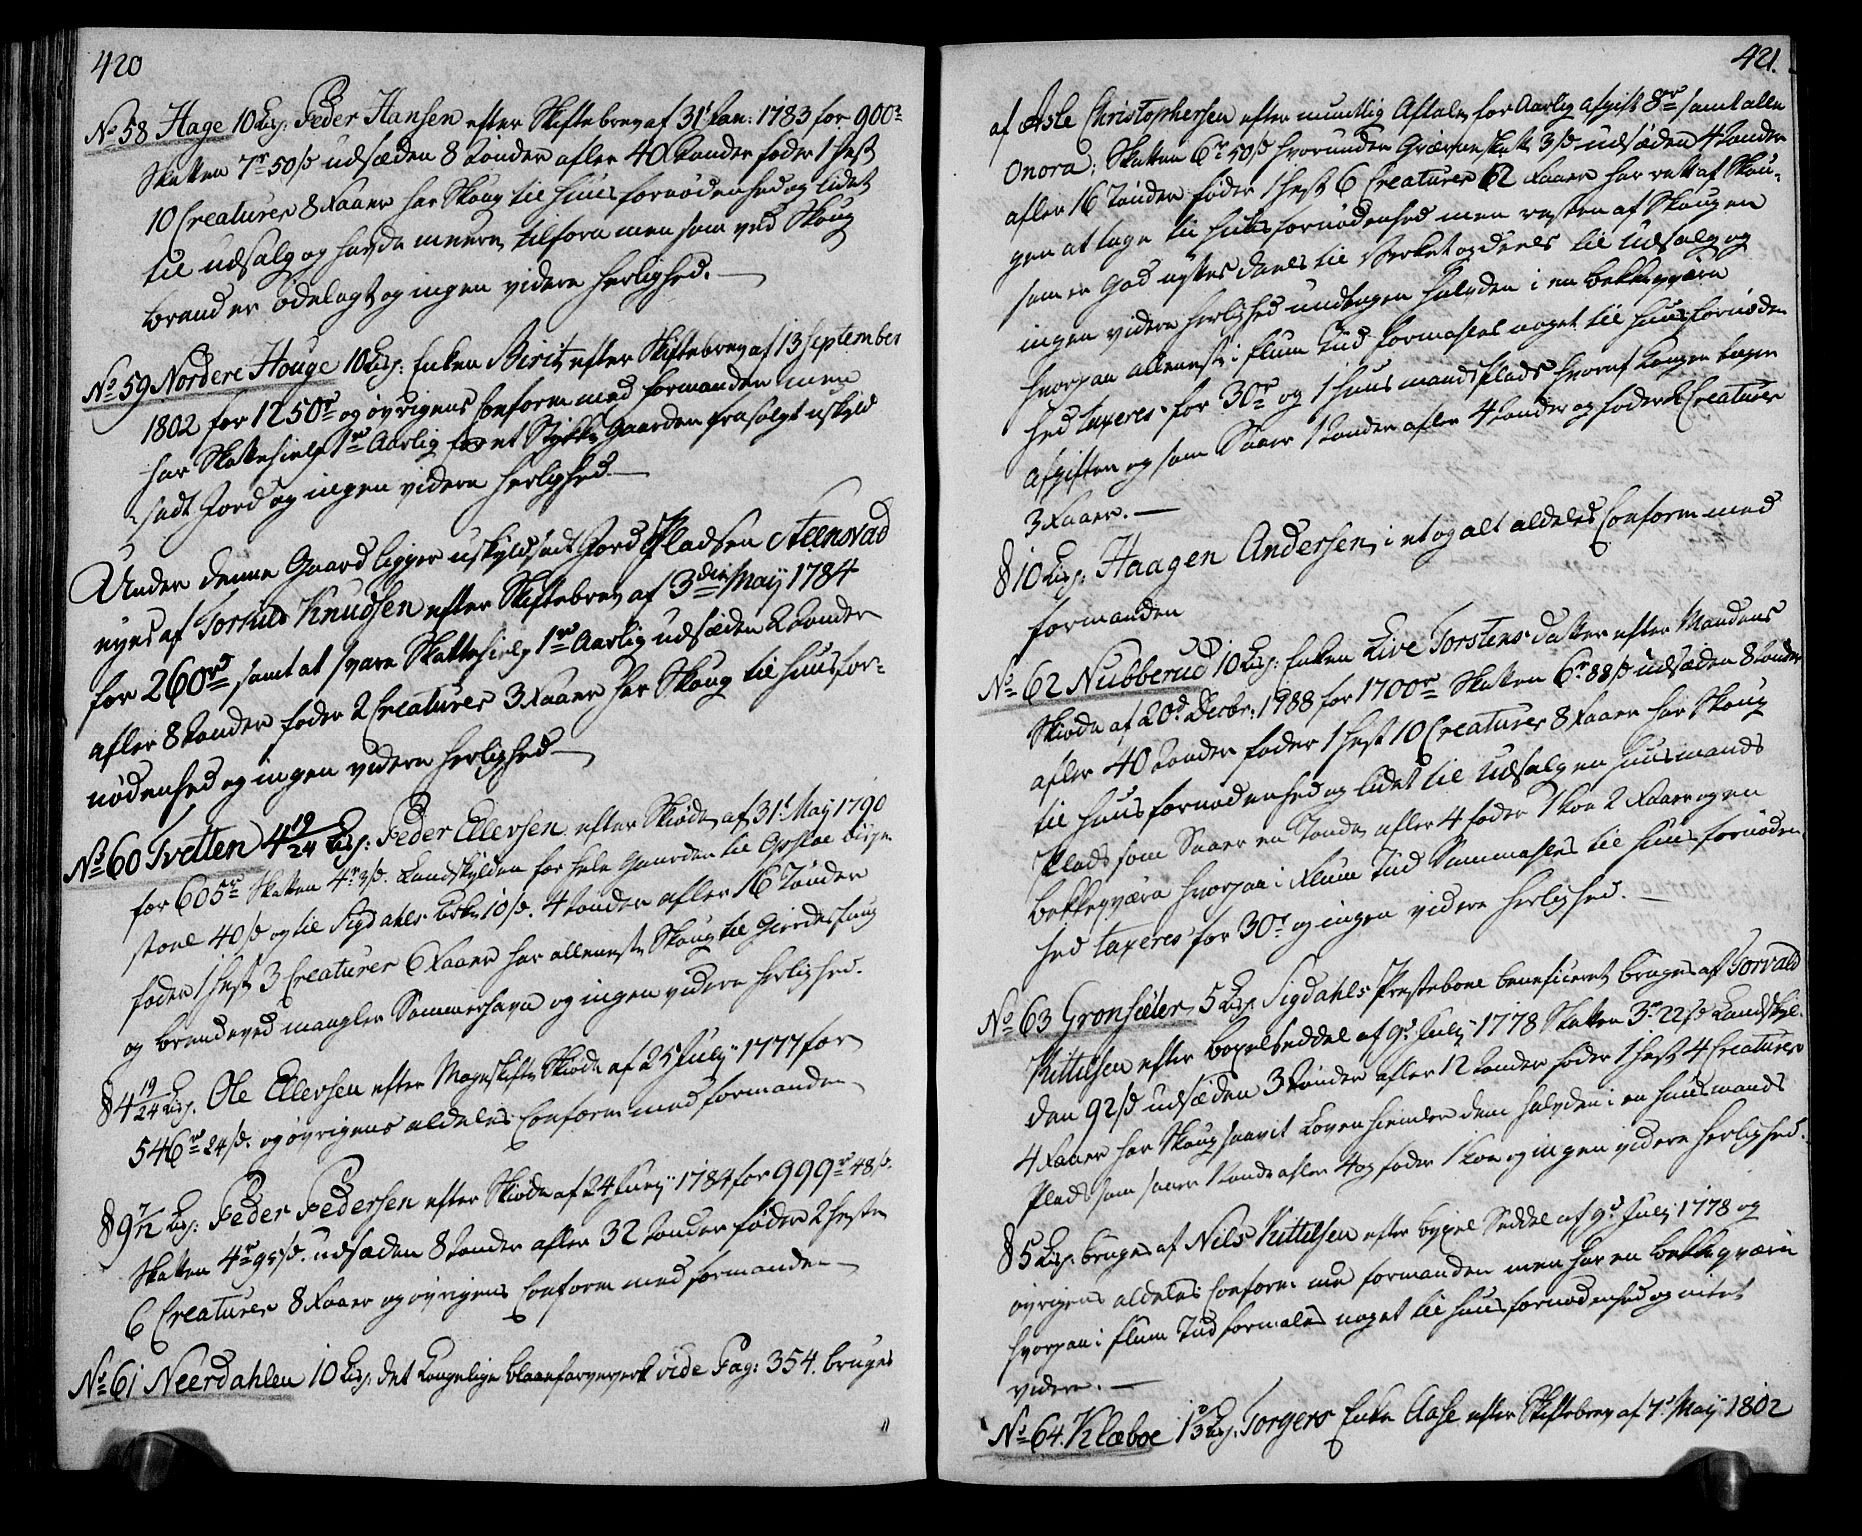 420
No 58 Hage 10 Lisp: Peder Hansen efter Skiftebrev af 31t Jan: 1783 for 900r
Skatten 7r 50s udsæden 8 Tønder afler 40 Tønder føder 1 Hest
10 Creaturer 8 Faaer har Skoug til Huusfornødenhed og lidet
til udsalg og havde meere tilforn men som ved Skoug
brand er ødelagt og ingen videre herlighed.
No 59 Nordere Houge 10 Lisp: Enken Birit efter Skiftebrev af 13 September
1802 for 1250r og øvrigens Conform med formanden men
har Skattehielp 1r Aarlig for et Stykke Gaarden frasolgt uskyld
sadt Jord og ingen videre herlighed.
Under denne Gaard ligger uskyldsadt Jord Pladsen Steensvad
eyes af Torkild Knudsen efter Skiftebrev af 3die May 1784
for 260r samt at svare Skattehielp 1r Aarlig udsæden 2 Tønder
afler 8 Tønder føder 2 Creaturer 3 Faaer har Skoug til Huusfor-
nødenhed og ingen videre herlighed
No 60 Tvetten 4 19/24 Lisp: Peder Ellevsen efter Skiøde af 31t May 1790
for 605r Skatten 4r 3s. Landskylden for hele Gaarden til Opsloe bispe
stoel 40s og til Sigdahls Kirke 10s. 4 Tønder afler 16 Tønder
føder 1 Hest 3 Creaturer 6 Faaer har alleneste Skoug til Gierdesfang
og brendeved mangler Sommerhavn og ingen videre herlighed.
§ 4 19/24 Lisp. Ole Ellevsen efter Mageskifte Skiøde af 25 July 1777 for
546r 24s. og øvrigens aldeles Conform med formanden
§ 9 7/12 Lisp: Peder Pedersen efter Skiøde af 24 Juny 1784 for 999r 48s.
Skatten 4r 95s. udsæden 8 Tønder afler 32 Tønder føder 2 Heste
6 Creaturer 8 Faaer og øvrigens Conform med formanden
No 61 Neerdahlen 10 Lisp. det Kongelige blaaefarveverk vide Pag: 354. bruges
421.
af Asle Christophersen efter mundtlig Aftale for Aarlig afgift 8r samt alle
Onera; Skatten 6r 50s hvorunder Qværneskatt 3s udsæden 4 Tønder
afler 16 Tønder føder 1 Hest 6 Creaturer 12 Faaer har rett af Skou-
gen at tage til Huusfornødenhed men resten af Skougen
som er God nyttes deels til Verket og deels til Udsalg og
ingen videre herlighed undtagen halvden i en bekkeqværn
hvorpaa alleneste i flum Tiid formahles noget til Huusfornøden
hed taxeres for 30r og 1 Huusmandsplads hvoraf Kongen tager
afgiften og som Saaer 1 Tønde afler 4 Tønder og føder 2 Creaturer
3 Faaer.
§ 10 Lisp: Haagen Andersen i et og alt aldeles Conform med
formanden
No 62 Nubberud 10 Lisp: Enken Live Torstens datter efter Mandens
Skiøde af 20d Decbr: 1788 for 1700r Skatten 6r 88s udsæden 8 Tønder
afler 40 Tønder føder 1 Hest 10 Creaturer 8 Faaer har Skoug
til Huusfornødenhed og lidet til Udsalg en Huusmands
Plads som Saaer en Tønde afler 4 føder 1 Koe 2 Faaer og en
bekkeqværn hvorpaa i Flum Tiid Sammahles til Huusfornøden
hed taxeres for 30r og ingen videre herlighed.
No 63 Grønsæter 5 Lisp. Sigdahls Prestebord beneficeret bruges af Torvald
Kittilsen efter bøxelseddel af 9d July 1778 Skatten 3r 22s Landskyl-
den 92s udsæden 3 Tønder afler 12 Tønder føder 1 Hest 4 Creaturer
4 Faaer har Skoug saavit Loven hiemler dem halvden i en Huusmands
Plads som saaer 1 Tønde afler 4 og føder 1 Koe og ingen videre herlighed.
§ 5 Lisp. bruges af Nils Kittilsen efter bøxel Seddel af 9d July 1778 og
øvrigens aldeles Conform med formanden men har en bekkeqværn
hvorpaa i flum Tiid formales noget til Huusfornødenhed og intet
videre.
No 64. Klæboe 13 Lisp. Torgers Enke Aase efter Skiftebrev af 7d May 1802